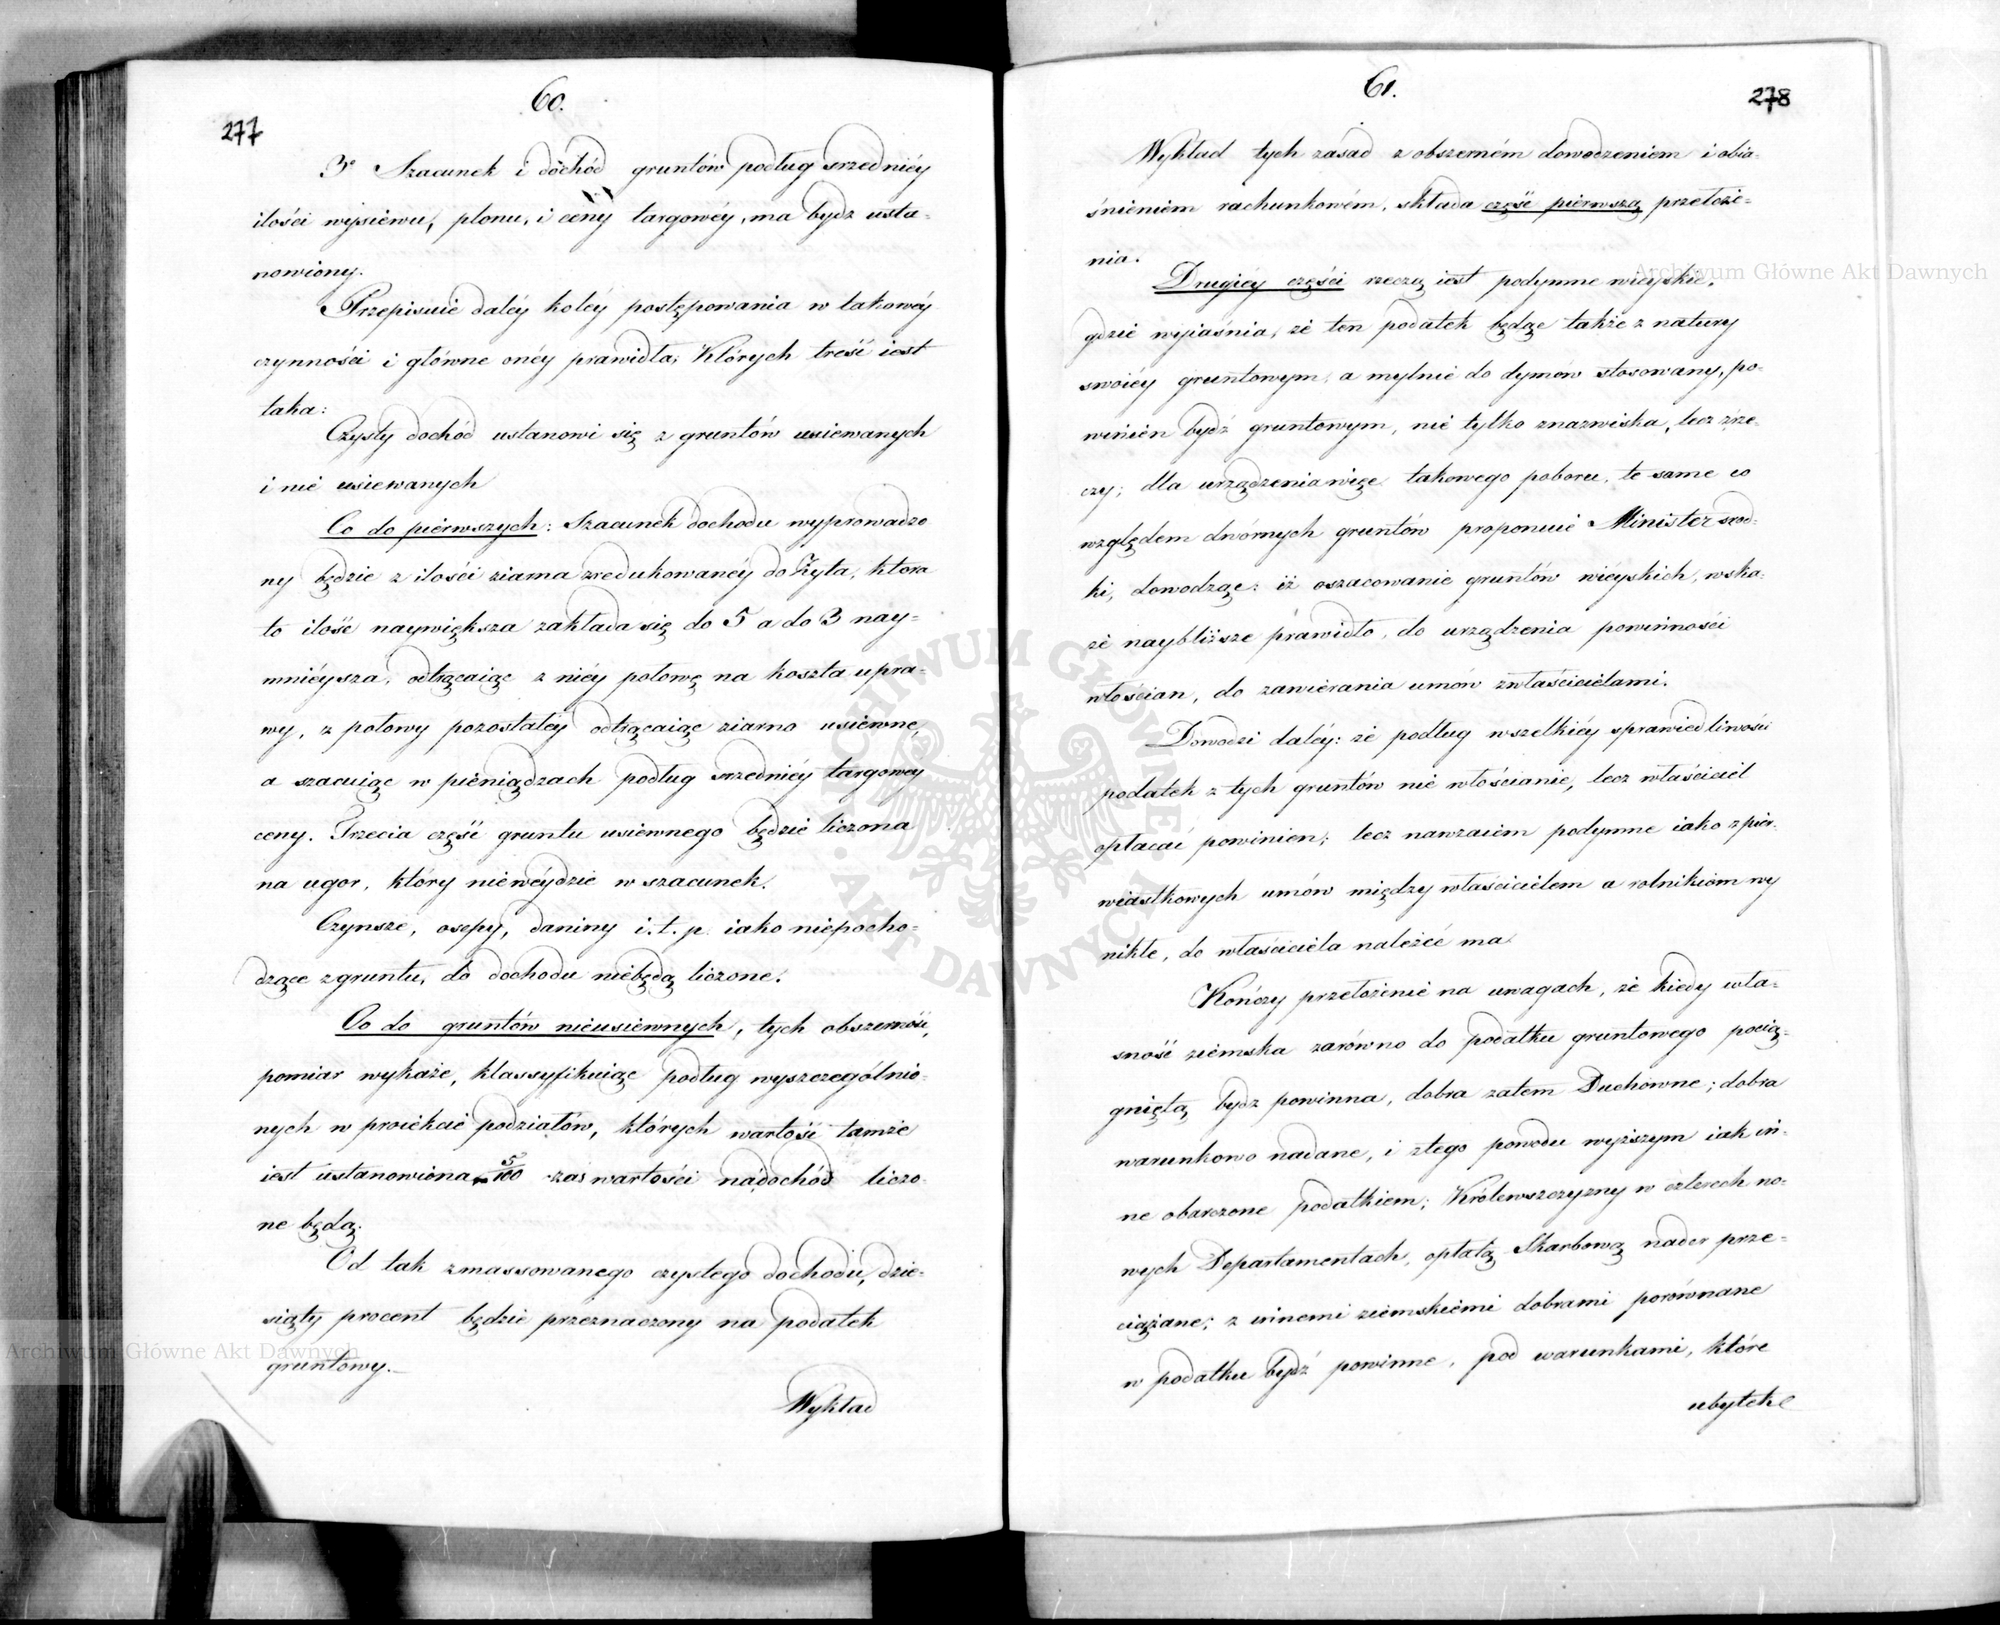 60.
277
3º Szacunek i dochód gruntów podług srzedniéy
ilości wysiewu, plonu, i ceny targowéy, ma bydz usta-
nowiony.
Przepisuie daléy koléy postępowania w takowéy
czynności i główne onéy prawidła, których treść iest
taka:
Czysty dochód ustanowi się z gruntów usiewanych
i nie usiewanych
Co do pierwszych: Szacunek dochodu wyprowadzo
ny będzie z ilości ziarna zredukowanéy do Żyta, ktora
to ilość naywiększa zakłada się do 5 a do 3 nay-
mnieysza, odtrącaiąc z niéy połowę na koszta upra-
wy, z połowy pozostałéy odtrącaiąc ziarno usiewne,
a szacuiąc w pieniądzach podług srzedniéy targowey
ceny. Trzecia część gruntu usiewnego będzie liczona
na ugor, który niewéydzie w szacunek.
Czynsze, osepy, daniny i. t. p. iako niepocho-
dzące z gruntu, do dochodu niebędą liczone.
Co do gruntów nieusiewnych, tych obszerność,
pomiar wykaże, klassyfikuiąc podług wyszczególnio-
nych w proiekcie podziałów, których wartość tamże
iest ustanowiona 5/100 zas wartości na dochód liczo-
ne będą.
Od tak zmassowanego czystego dochodu, dzie-
siąty procent będzie przeznaczony na podatek
gruntowy.
Wykład
61.
278
Wykład tych zasad z obszerném dowodzeniem i obia-
śnieniem rachunkowém, składa część pierwszą przełoże-
nia.
Drugiéy części rzeczą iest podymne wieyskie,
gdzie wyiaśnia, że ten podatek będąc także z natury
swoiéy gruntowym, a mylnie do dymów stosowany, po-
winien bydź gruntowym, nie tylko z nazwiska, lecz z rze-
czy; dla urządzenia więc takowego poboru, te same co
względem dwórnych gruntów proponuie Minister srod-
ki, dowodząc: iż oszacowanie gruntów wiéyskich, wska-
że naybliższe prawidło, do urządzenia powinności
włościan, do zawierania umów z właścicielami.
Dowodzi daléy: że podług wszelkiéy sprawiedliwości
podatek z tych gruntów nie włościanie, lecz właściciel
opłacać powinien; lecz nawzaiem podymne iako z pier-
wiastkowych umów między właścicielem a rolnikiem wy
nikłe, do właściciela należeć ma.
Kończy przełożenie na uwagach, że kiedy wła-
sność ziemska zarówno do podatku gruntowego pocią-
gniętą bydz powinna, dobra zatem Duchowne; dobra
warunkowo nadane, i z tego powodu wyższym iak in-
ne obarczone podatkiem; Królewszczyzny w czterech no-
wych Departamentach, opłatą Skarbową nader prze-
ciążane; z innemi ziemskiémi dobrami porównane
w podatku bydź powinne, pod warunkami, które
ubytek